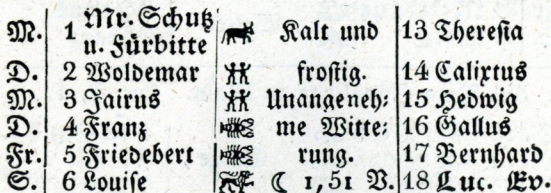 M. 1 Mr. Schutz u. Fürbitte Kalt und 13 Theresia
D. 2 Woldemar frostig. 14 Calixtus
M. 3 Jairus Unangeneh⸗ 15 Hedwig
D. 4 Franz me Witte⸗ 16 Gallus
Fr. 5 Friedebert rung. 17 Bernhard
S. 6 Louise ☾ 1,51 V. 18 Luc. Ev.